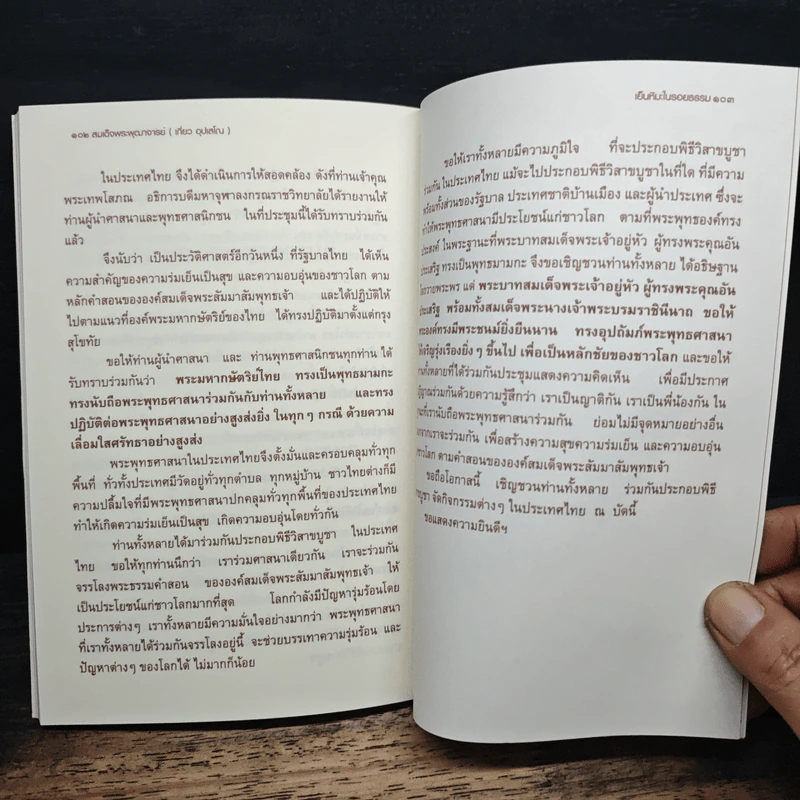 ๑๐๒ สมเด็จพระพุฒาจารย์ ( เกี่ยว อุปเสโณ )
ในประเทศไทย จึงได้ดำเนินการให้สอดคล้อง ดังที่ท่านเจ้าคุณ
พระเทพโสภณ อธิการบดีมหาจุฬาลงกรณราชวิทยาลัยได้รายงานให้
ท่านผู้นำศาสนาและพุทธศาสนิกชน ในที่ประชุมนี้ได้รับทราบร่วมกัน
แล้ว
จึงนับว่า เป็นประวัติศาสตร์อีกวันหนึ่ง ที่รัฐบาลไทย ได้เห็น
ความสำคัญของความร่มเย็นเป็นสุข และความอบอุ่นของชาวโลก ตาม
หลักคำสอนขององค์สมเด็จพระสัมมาสัมพุทธเจ้า และได้ปฏิบัติให้
ไปตามแนวที่องค์พระมหากษัตริย์ของไทย ได้ทรงปฏิบัติมาตั้งแต่กรุง
สุโขทัย
ขอให้ท่านผู้นำศาสนา และ ท่านพุทธศาสนิกชนทุกท่าน ได้
รับทราบร่วมกันว่า พระมหากษัตริย์ไทย ทรงเป็นพุทธมามกะ
ทรงนับถือพระพุทธศาสนาร่วมกันกับท่านทั้งหลาย และทรง
ปฏิบัติต่อพระพุทธศาสนาอย่างสูงส่งยิ่ง ในทุก ๆ กรณี ด้วยความ
เลื่อมใสศรัทธาอย่างสูงส่ง
พระพุทธศาสนาในประเทศไทยจึงตั้งมั่นและครอบคลุมทั่วทุก
พื้นที่ ทั่วทั้งประเทศมีวัดอยู่ทั่วทุกตำบล ทุกหมู่บ้าน ชาวไทยต่างก็มี
ความปลื้มใจที่มีพระพุทธศาสนาปกคลุมทั่วทุกพื้นที่ของประเทศไทย
ทำให้เกิดความร่มเย็นเป็นสุข เกิดความอบอุ่นโดยทั่วกัน
ท่านทั้งหลายได้มาร่วมกันประกอบพิธีวิสาขบูชา ในประเทศ
ไทย ขอให้ทุกท่านนึกว่า เราร่วมศาสนาเดียวกัน เราจะร่วมกัน
จรรโลงพระธรรมคำสอน ขององค์สมเด็จพระสัมมาสัมพุทธเจ้า ให้
เป็นประโยชน์แก่ชาวโลกมากที่สุด โลกกำลังมีปัญหารุ่มร้อนโดย
ประการต่าง ๆ เราทั้งหลายมีความมั่นใจอย่างมากว่า พระพุทธศาสนา
ที่เราทั้งหลายได้ร่วมกันจรรโลงอยู่นี้ จะช่วยบรรเทาความรุ่มร้อน และ
ปัญหาต่าง ๆ ของโลกได้ ไม่มากก็น้อย
เย็นหิมะในรอยธรรม ๑๐๓
ขอให้เราทั้งหลายมีความภูมิใจ ที่จะประกอบพิธีวิสาขบูชา
ร่วมกัน ในประเทศไทย แม้จะไปประกอบพิธีวิสาขบูชาในที่ใด ที่มีความ
พร้อมทั้งส่วนของรัฐบาล ประเทศชาติบ้านเมือง และผู้นำประเทศ ซึ่งจะ
ทำให้พระพุทธศาสนามีประโยชน์แก่ชาวโลก ตามที่พระพุทธองค์ทรง
ประสงค์ ในพระฐานะที่พระบาทสมเด็จพระเจ้าอยู่หัว ผู้ทรงพระคุณอัน
ประเสริฐ ทรงเป็นพุทธมามกะ จึงขอเชิญชวนท่านทั้งหลาย ได้อธิษฐาน
ถวายพระพร แด่ พระบาทสมเด็จพระเจ้าอยู่หัว ผู้ทรงพระคุณอัน
ประเสริฐ พร้อมทั้งสมเด็จพระนางเจ้าพระบรมราชินีนาถ ขอให้
พระองค์ทรงมีพระชนม์ยิ่งยืนนาน ทรงอุปถัมภ์พระพุทธศาสนา
ให้เจริญรุ่งเรืองยิ่ง ๆ ขึ้นไป เพื่อเป็นหลักชัยของชาวโลก และขอให้
ท่านทั้งหลายที่ได้ร่วมกันประชุมแสดงความคิดเห็น เพื่อมีประกาศ
ร่วมกันด้วยความรู้สึกว่า เราเป็นญาติกัน เราเป็นพี่น้องกัน ใน
ที่เรานับถือพระพุทธศาสนาร่วมกัน ย่อมไม่มีจุดหมายอย่างอื่น
จากเราจะร่วมกัน เพื่อสร้างความสุขความร่มเย็น และความอบอุ่น
ชาวโลก ตามคำสอนขององค์สมเด็จพระสัมมาสัมพุทธเจ้า
ขอถือโอกาสนี้ เชิญชวนท่านทั้งหลาย ร่วมกันประกอบพิธี
บูชา จัดกิจกรรมต่าง ๆ ในประเทศไทย ณ บัดนี้
ขอแสดงความยินดีฯ